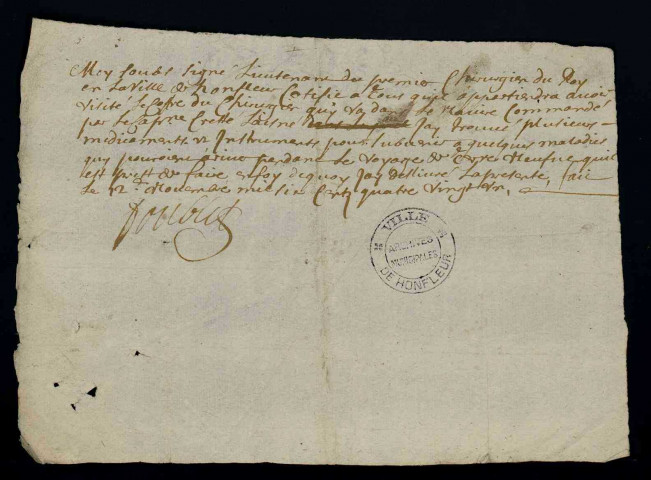 Moy soubs signé Lieutenant du premier Chirurgien du Roy
en La Ville de honfleur Certifie a tous quil appartiendra avoir
visité le Cofre du Chirurgien quy va dans le Navire Commandé
par le Sapne Jay trouvé plusieurs
medicaments et Instruments pour subvenir a quelques maladies
quy pouroient ariver pendant le voyage de terre Neufve quil
est prest de faire en foy dequoy Jay dellivré La presente, fait
le 12e Novembre mil six Cents quatre vingt
VILLE
ARCHIVES
MUNICIPALES
DE HONFLEUR